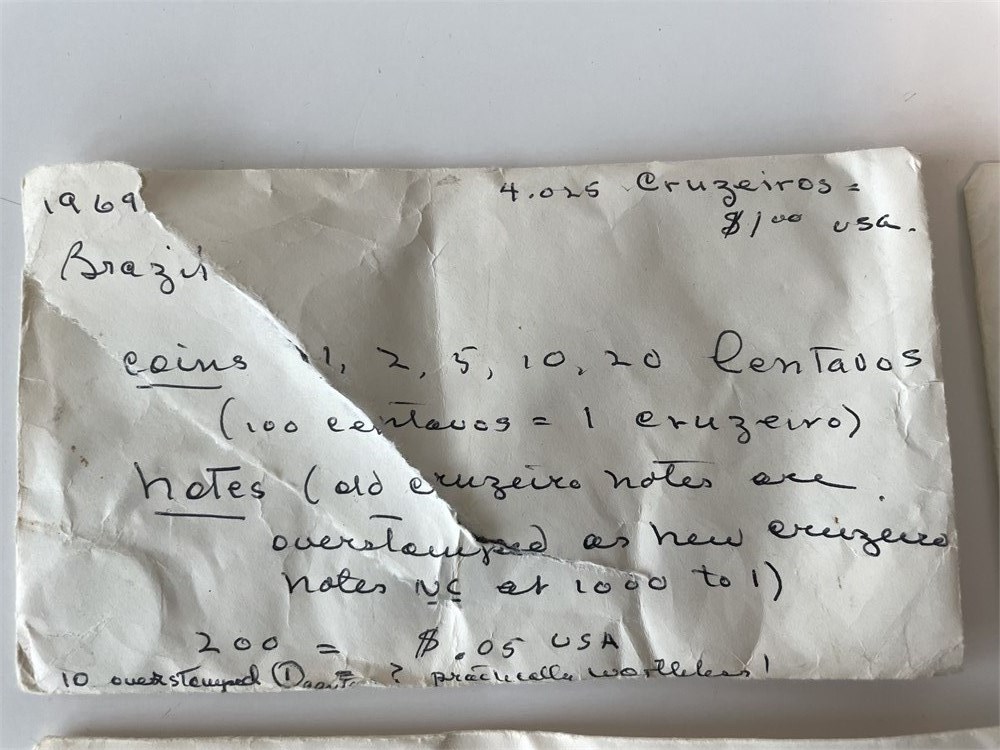 1969
4.025 Cruzeiros =
$1.00 USA.
Brazil
coins 1, 2, 5, 10, 20 Centavos
(100 centavos = 1 cruzeiro)
Notes (old cruzeiro notes are
overstamped as new cruzeiro
notes NC at 1000 to 1)
200 = $.05 USA
10 overstamped 1 = ? practically worthless!